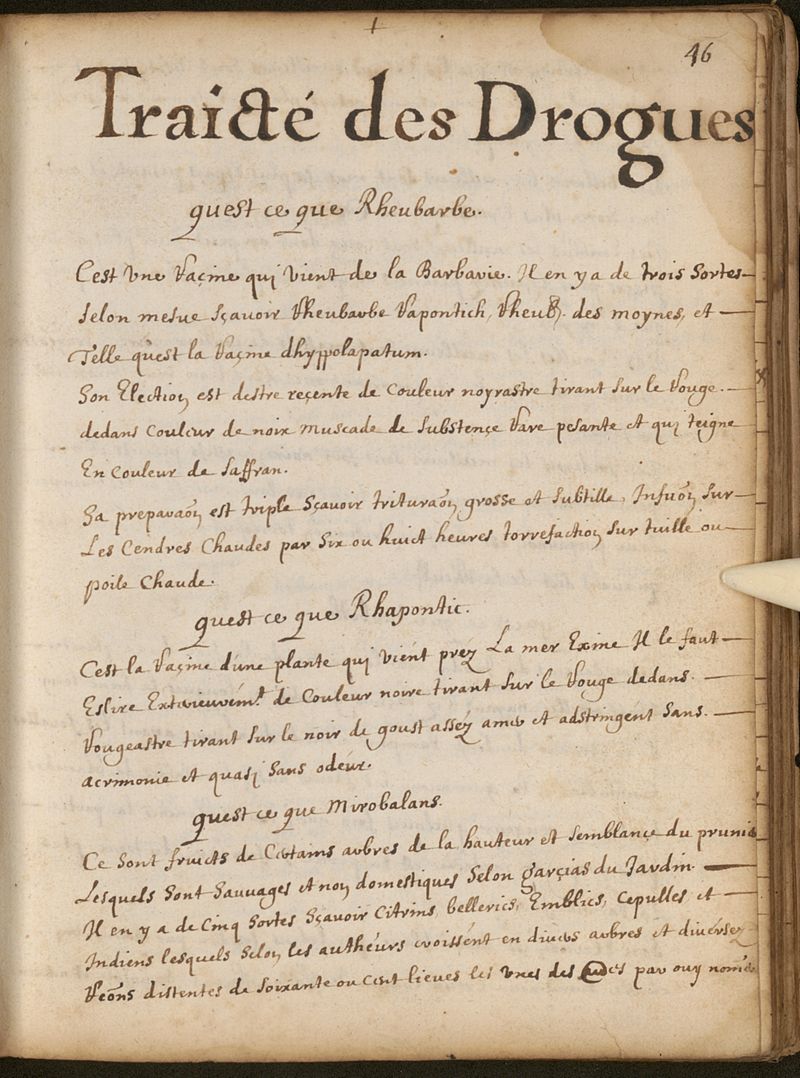 46
Traicté des Drogues
quest ce que Rheubarbe.
Cest Vne Raçine qui Vient de la Barbarie. Il en y a de trois Sortes
Selon mesue Sçavoir Rheubarbe Rapontich, Rheub. des moynes, et
Telle quest la Raçine dhyppolapatum.
Son Election est destre reçente de Couleur noyrastre tirant Sur le Rouge.
dedans Couleur de noix muscade de Substençe Rare pesante et qui teigne
En Couleur de Saffran.
Sa preparaon est triple Sçavoir trituraon grosse et Subtille, Infuon Sur
Les Cendres Chaudes par Six ou huict heures torrefaction Sur tuille ou
poile Chaude.
quest ce que Rhapontic.
Cest la Raçine dune plante qui Vient prez La mer Exine Il le faut
Eslire Exterieurem.t de Couleur noire tirant Sur le Rouge dedans.
Rougeastre tirant Sur le noir de goust assez amer et adstringent Sans.
acrimonie et quasi Sans odeur.
quest ce que Mirobalans.
Ce Sont fruicts de Certains arbres de la hauteur et Semblançe du prunie
Lesquels Sont Sauvages et non domestiques Selon garçias du Jardin.
Il en y a de Cinq Sortes Sçavoir Citrins, bellerics, Emblics, Cepulles et
Indiens lesquels Selon les autheurs croissent en divers arbres et diversez
Reons distentes de Soixante ou Cent lieues les Vnes des par ouy nome